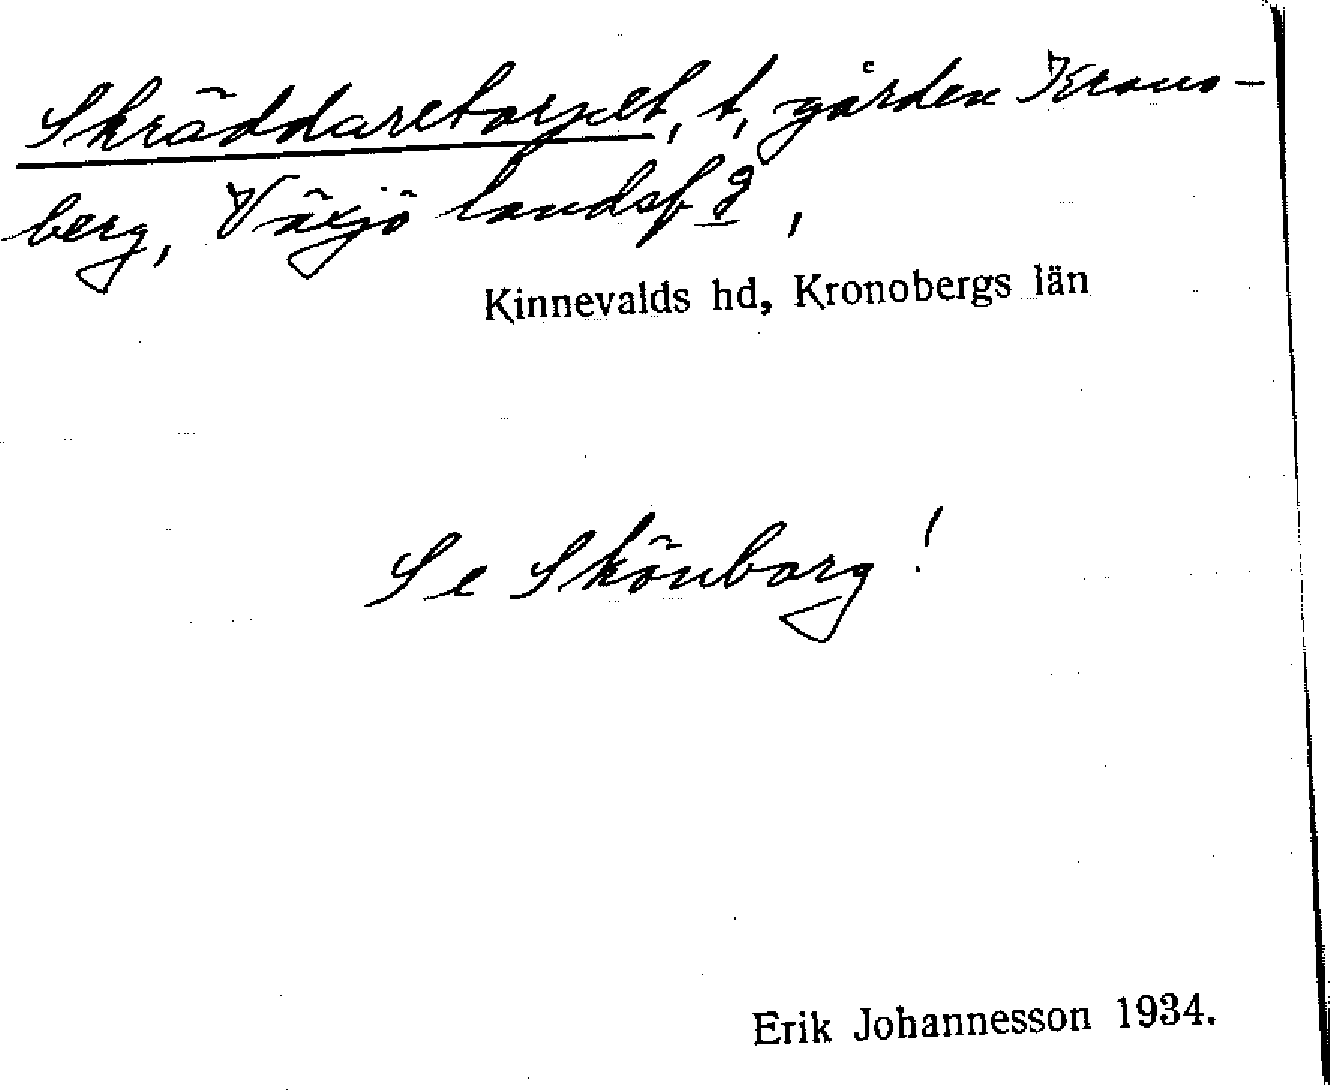 Skräddaretorpet, t, gården Krono-
berg, Växjö landsf g,
Kinnevalds hd, Kronobergs län
Se Skönborg!
Erik Johannesson 1934.